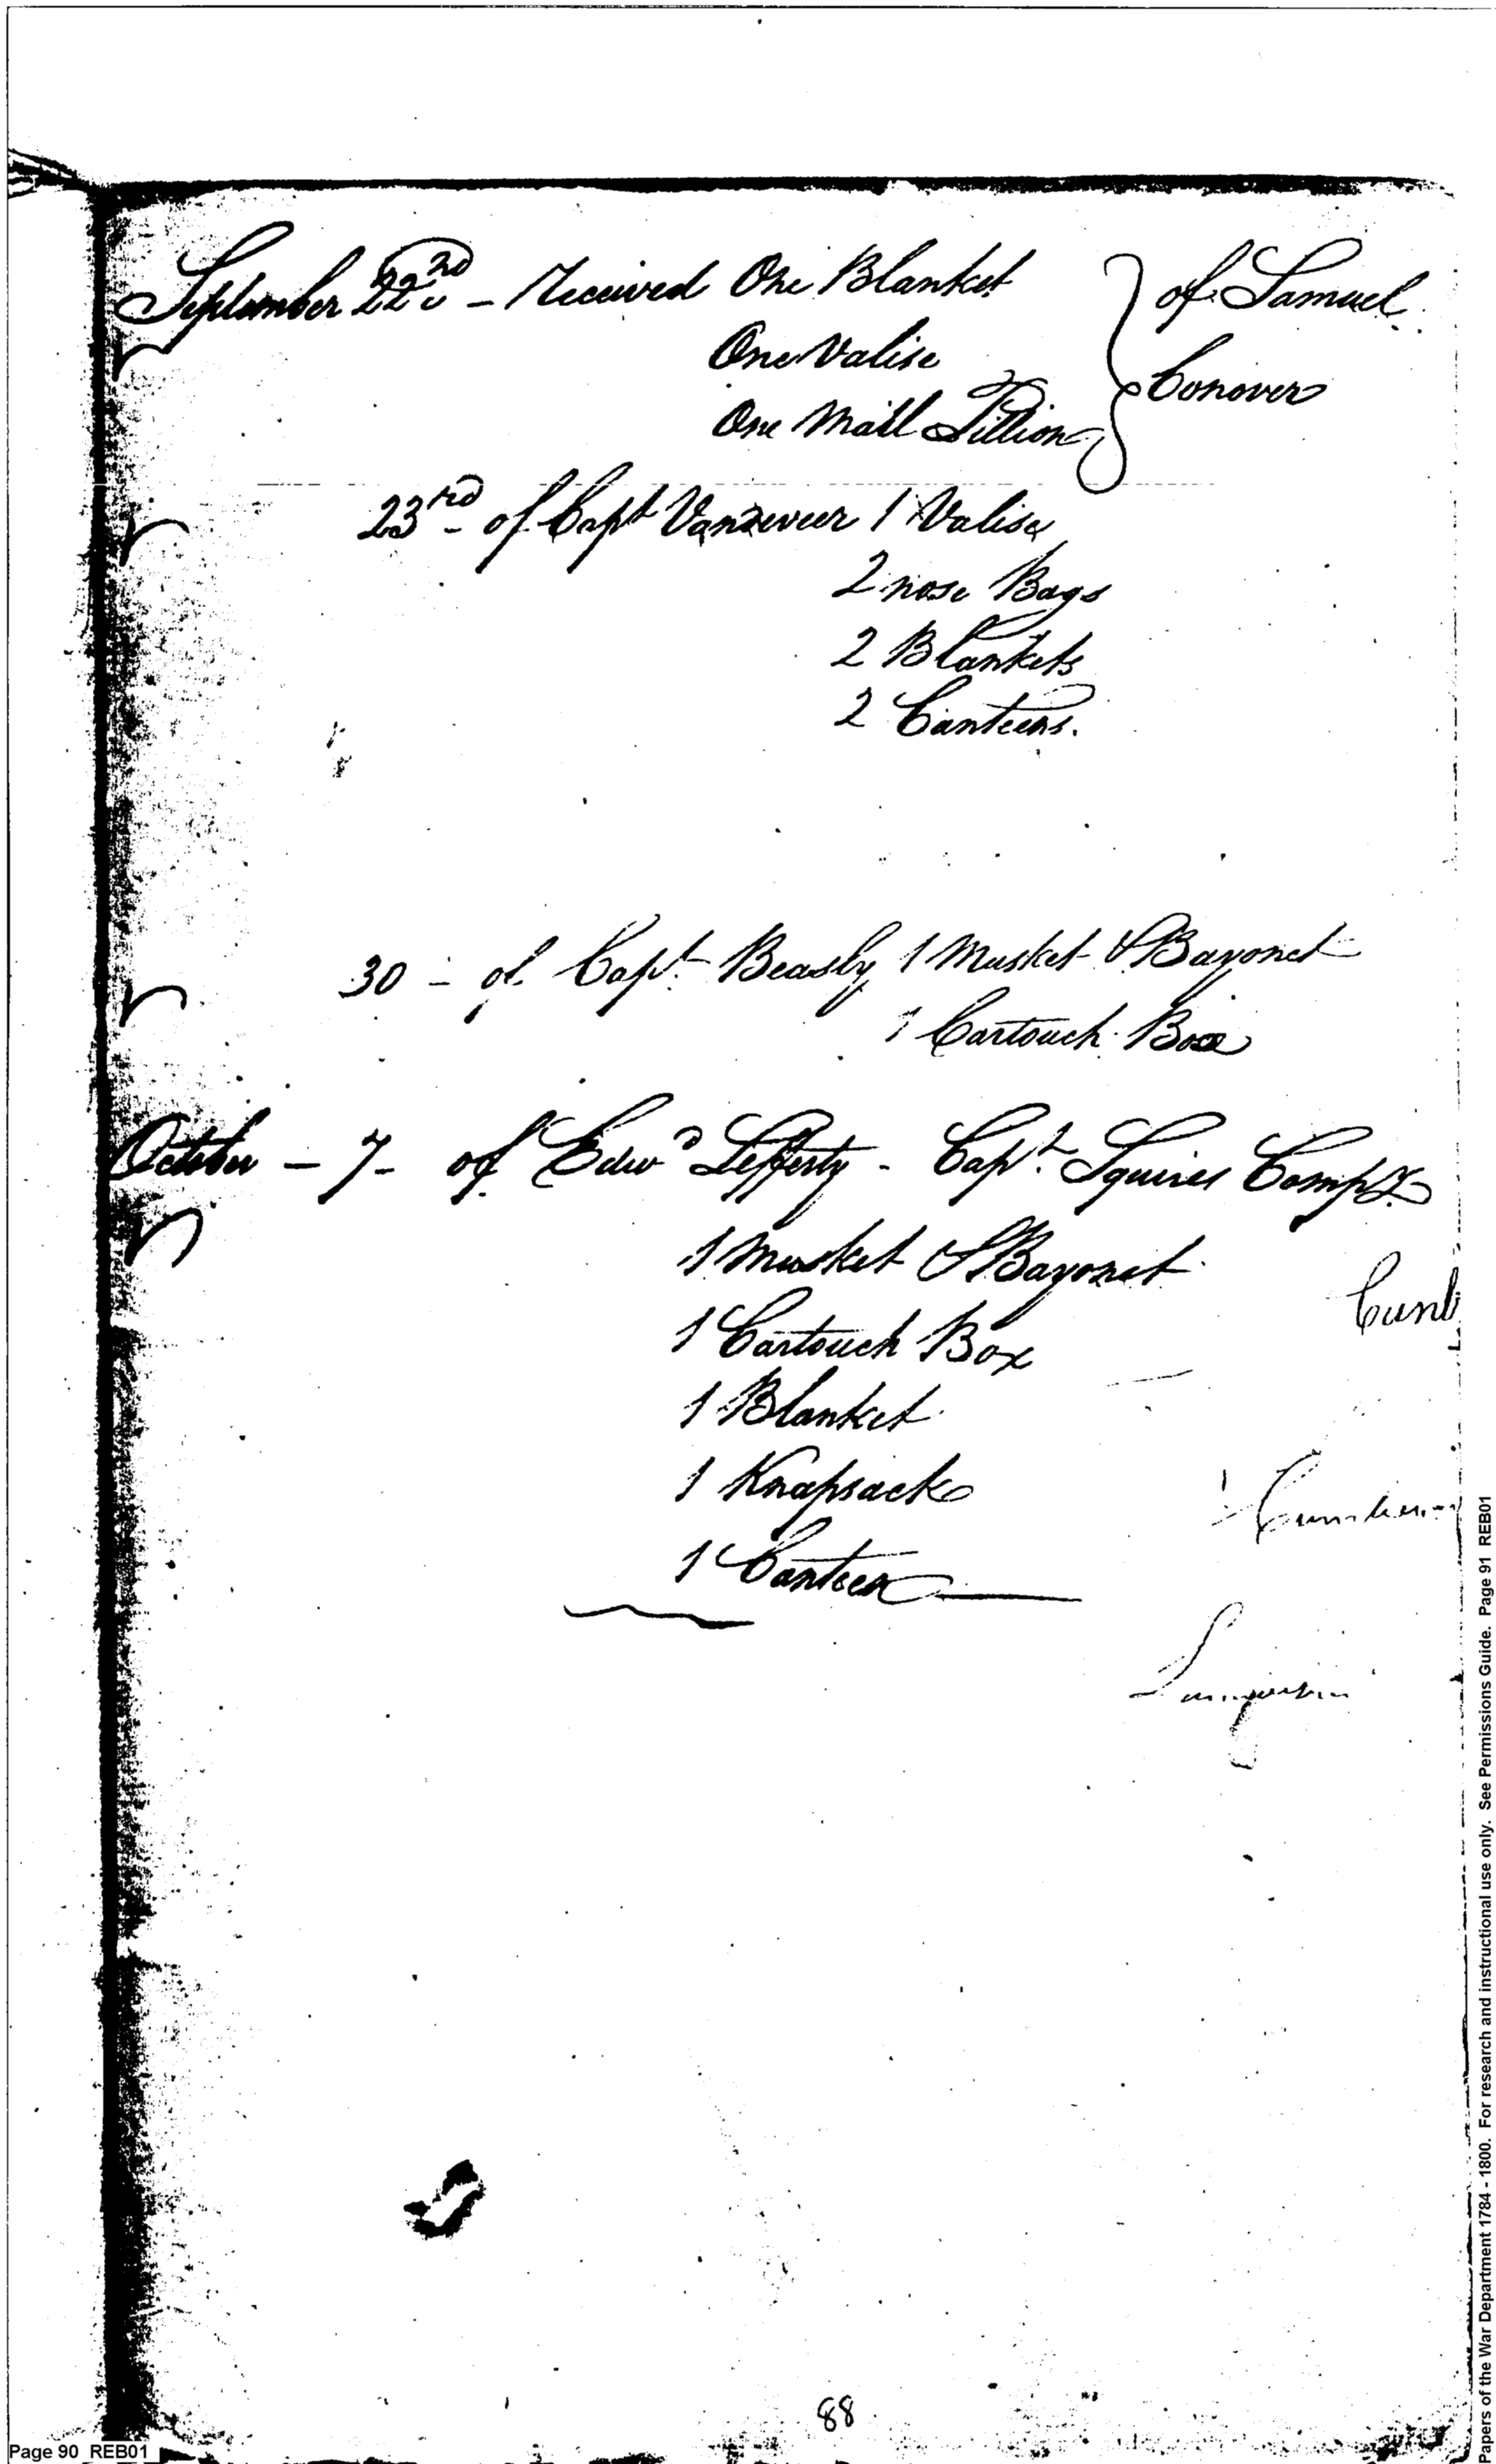 September 22nd - Received One Blanket } of Samuel
One Valise Conover
One Mail Pillion
23rd - of Capt Vanzeveer 1 Valise
2 nose Bags
2 Blankets
2 Canteens.
30 - of Capt. Beasly 1 Musket & Bayonet
1 Cartouch Box
October - 7 - of Edwd Lefferty - Capt. Squires Compy.
1 Musket & Bayonet
Cumb
1 Cartouch Box
1 Blanket
1 Knapsack
1 Canteen
88
Page 90 REB01
Papers of the War Department 1784 - 1800. For research and instructional use only. See Permissions Guide. Page 91 REB01